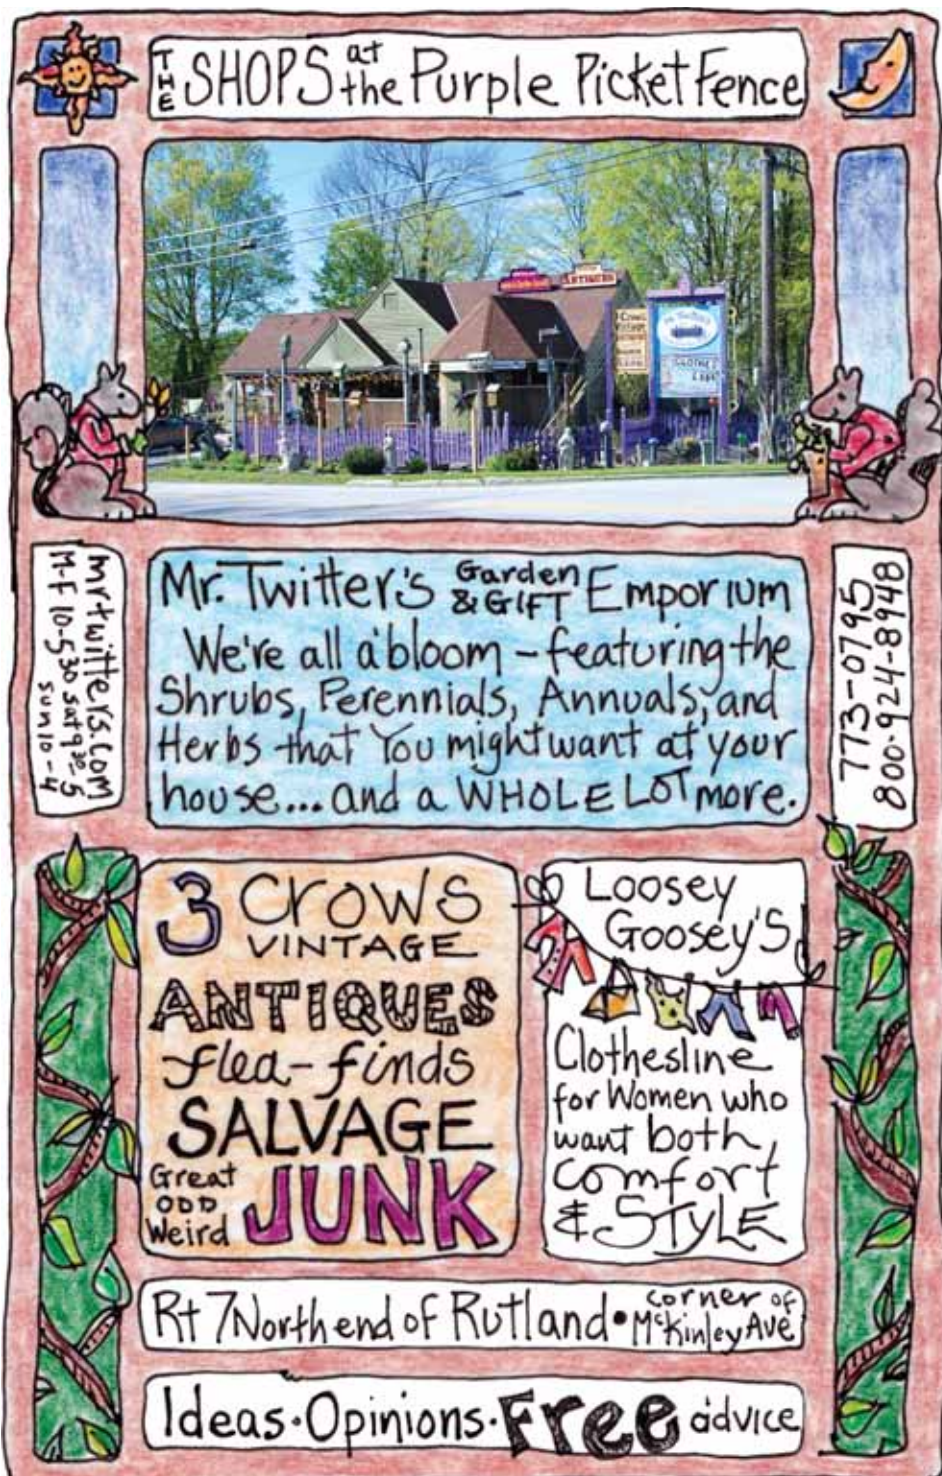 THE SHOPS at the Purple Picket Fence
ANTIQUES
mrtwitters.com
M-F 10-5:30 sat 9:30-5
sun 10-4
Mr. Twitter's Garden & GIFT Emporium
We're all a'bloom - featuring the
Shrubs, Perennials, Annuals, and
Herbs that You might want at your
house... and a WHOLE LOT more.
773-0795
800-924-8948
3 Crows
VINTAGE
ANTIQUES
flea-finds
SALVAGE
Great ODD Weird JUNK
Loosey
Goosey's
Clothesline
for Women who
want both
Comfort
& STYLE
Rt 7 North end of Rutland • corner of McKinley Ave
Ideas • Opinions • Free advice